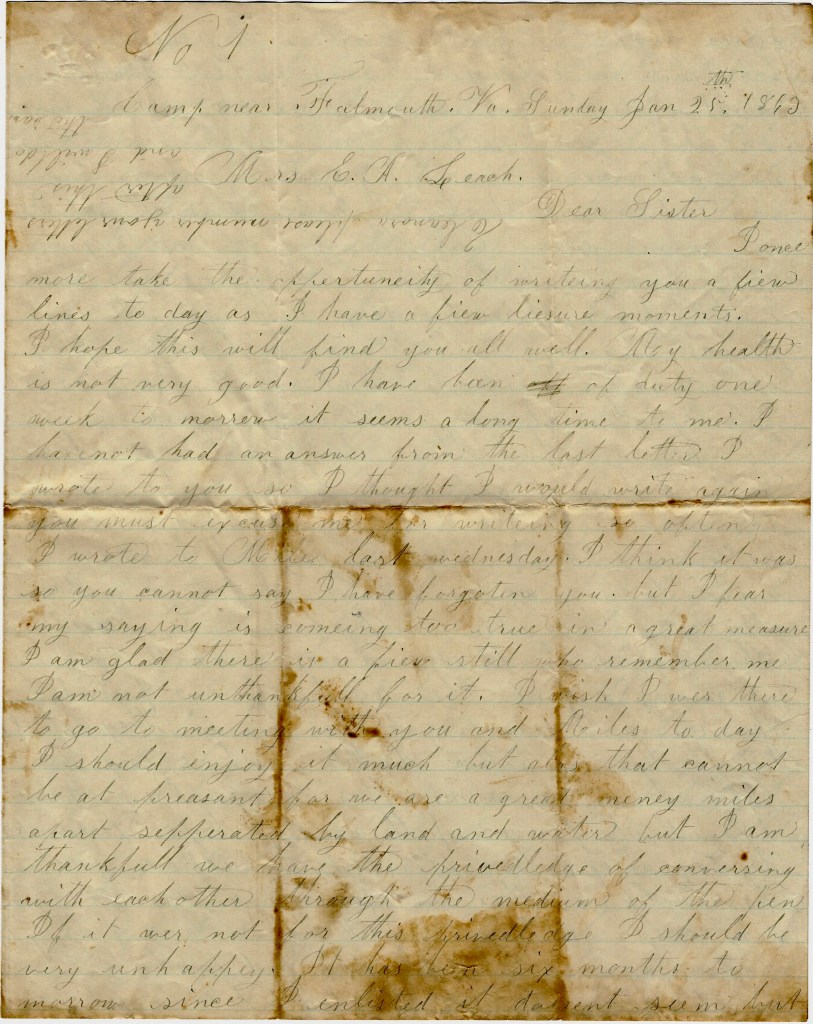 No 1.
Camp near Falmouth. Va. Sunday Jan 25th. 1863
Mrs E. A. Leach.
Dear Sister
I once
more take the oppertuneity of writeing you a fiew
lines to day as I have a fiew liesure moments.
I hope this will find you all well. My health
is not very good. I have been of duty one
week to morrow it seems a long time to me. I
have not had an answer from the last letter I
wrote to you so I thought I would write again
you must excuse me for writeing so often
I wrote to last wednesday. I think it was
so you cannot say I have forgoten you. but I fear
my saying is comeing too true in a great measure
I am glad there is a fiew still who remember me
I am not unthankfull for it. I wish I wer there
to go to meeting with you and Miles to day
I should enjoy it much but alas that cannot
be at preasant for we are a great meney miles
apart sepperated by land and water but I am
thankfull we have the privelledge of conversing
with each other through the medium of the pen
If it wer not for this privedledge I should be
very unhappey. It has been six months to
morrow since I enlisted it dosent seem but
please number your letters
after this
and I will do
the same